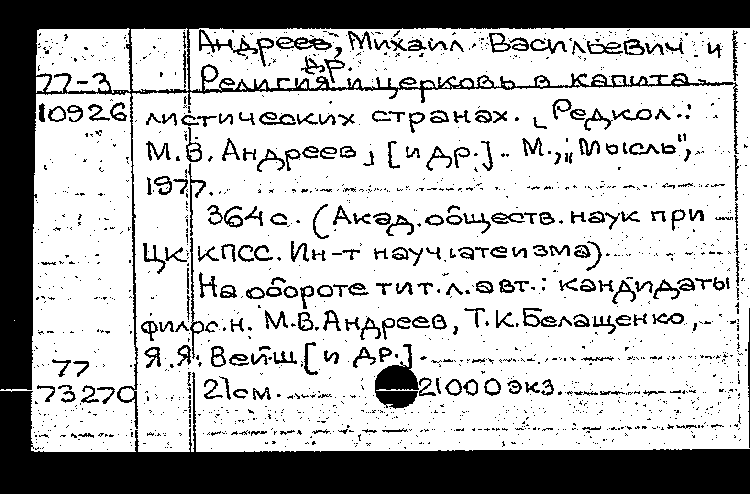 Андреев, Михаил Васильевич и
др.
77-3 Религия и церковь в капита-
10926 листических странах. [Редкол.:
М.В. Андреев] [и др.]. М., "Мысль",
1977.
364 с. (Акад. обществ. наук при
ЦК КПСС. Ин-т науч. атеизма)
На обороте тит. л. авт.: кандидаты
филос. н. М.В. Андреев, Т.К. Белащенко,
Я.Я. Вейш [и др.].
77
73270 21 см. 21000 экз.